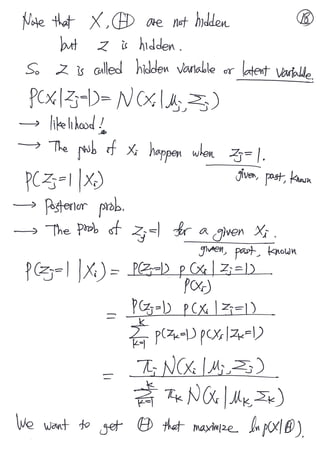 Note that X, Ⓗ are not hidden
⑱
but Z is hidden.
So Z is called hidden variable or latent variable.
P(Xi|Zj=1) = N(Xi|μj, Σj)
→ likelihood!
→ The prob of Xi happen when Zj=1.
given, past, known
P(Zj=1|Xi)
→ Posterior prob.
→ The Prob of Zj=1 for a given Xi.
given, past, known
P(Zj=1|Xi) = P(Zj=1) P(Xi|Zj=1) / P(Xi)
= P(Zj=1) P(Xi|Zj=1) / Σ_{k=1}^{k} P(Zk=1) P(Xi|Zk=1)
= πj N(Xi|μj, Σj) / Σ_{k=1}^{k} πk N(Xi|μk, Σk)
We want to get Ⓗ that maximize ln p(X|Ⓗ).